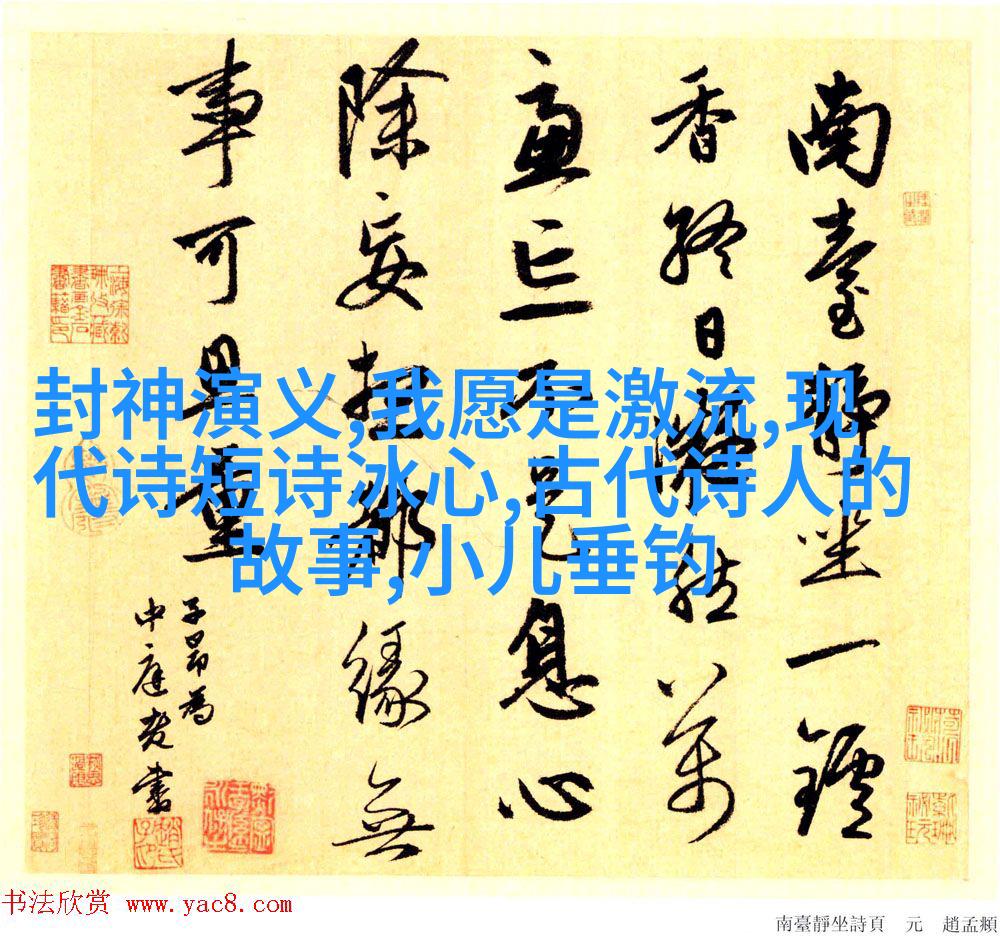 南臺靜坐一鑪
香終日凝然萬
慮亡不是息心
除妄想都緣無
事可思量
子昂為
中庭老書
封神演义,我愿是激流,现
代诗短诗冰心,古代诗人的
故事,小儿垂钓
书法欣赏 www.yac8.com
南臺靜坐詩頁 元 趙孟頫